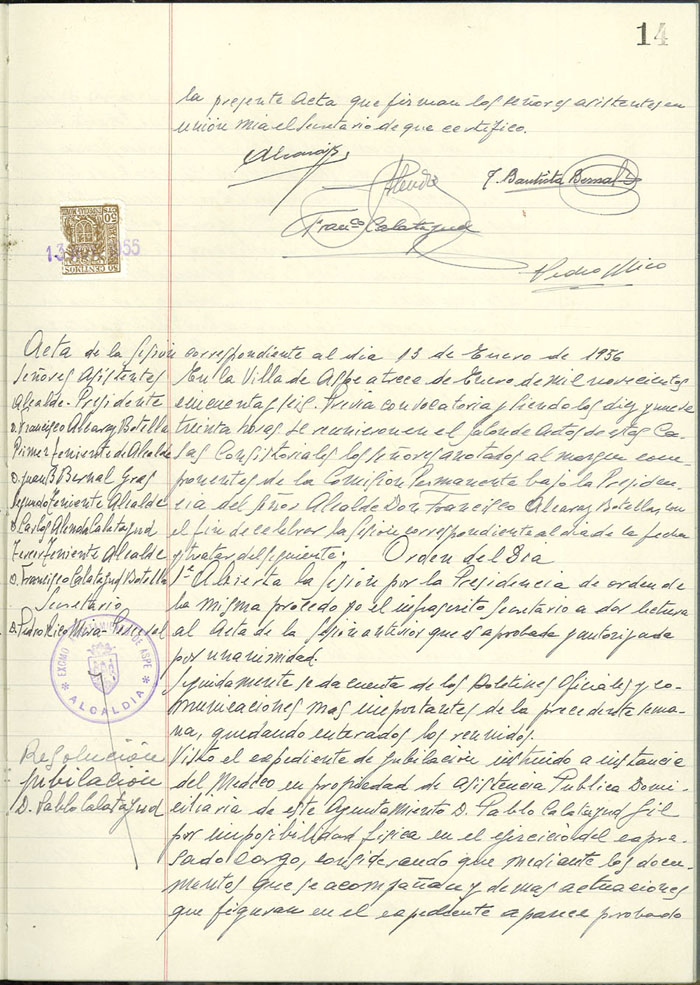 14
la presente Acta que firman los señores asistentes en
unión mia el Secretario de que certifico.
J. Bautista Bernal
Franco Calatayud
Pedro Mico
50
50 CENTIMOS
13 55
Acta de la Sesión correspondiente al dia 13 de Enero de 1956
Señores Asistentes
Alcalde-Presidente
D. Francisco Alcaraz Botella
Primer Teniente de Alcalde
D. Juan B Bernal Gras
Segundo Teniente Alcalde
D. Carlos Alenda Calatayud
Tercer Teniente Alcalde
D. Francisco Calatayud Botella
Secretario
D. Pedro Mico
EXCMO. AYUNTAMIENTO DE ASPE
* ALCALDIA *
Resolución
jubilación
D. Pablo Calatayud
En la Villa de Aspe a trece de Enero de mil novecientos
cincuenta y seis. Previa convocatoria y siendo las diez y nueve
treinta horas. Se reunieron en el salon de Actos de estas Ca-
sas Consistoriales los señores anotados al margen com-
ponentes de la Comisión Permanente bajo la Presiden-
cia del Señor Alcalde Don Francisco Alcaraz Botella, con
el fin de celebrar la Sesión correspondiente al dia de la fecha
y tratar del siguiente: Orden del Dia
1º Abierta la Sesión por la Presidencia de orden de
la misma procedo yo el infrascrito Secretario a dar lectura
al Acta de la Sesión anterior que es aprobada y autorizada
por unanimidad.
Seguidamente se da cuenta de los Boletines Oficiales y co-
municaciones mas importantes de la precedente sema-
na, quedando enterados los reunidos.
Visto el expediente de jubilación instruido a instancia
del Medico en propiedad de Asistencia Publica Domi-
ciliaria de este Ayuntamiento D. Pablo Calatayud Gil
por imposibilidad fisica en el ejercicio del expre-
sado cargo, considerando que mediante los docu-
mentos que se acompañan y demas actuaciones
que figuran en el expediente aparece probado